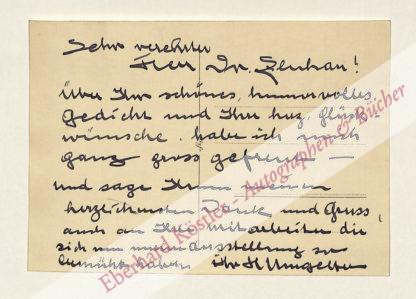 Sehr verehrter
Herr Dr. Elenhan!
Über Ihr schönes, humorvolles,
Gedicht und Ihre herz. Glück-
wünsche, habe ich mich
ganz gross gefreut –
und sage Ihnen meinen
herzlichsten Dank und Gruss,
auch an Ihre Mitarbeiter die
sich um meine Ausstellung so
bemüht haben. Ihr
Eberhard Köstler - Autographen & Bücher